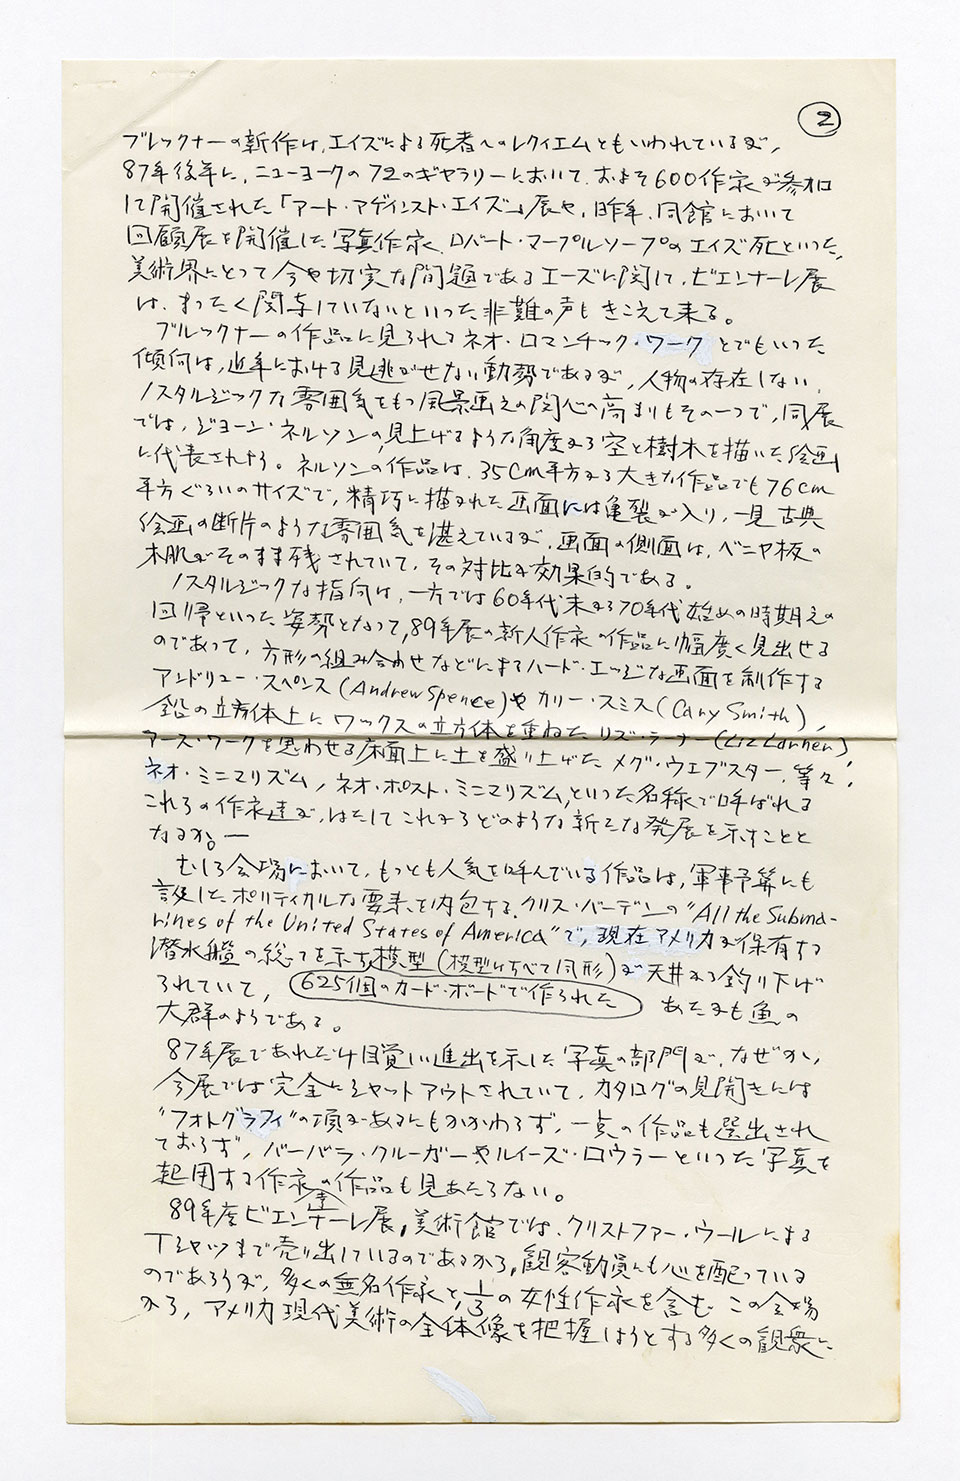 2
ブレックナーの新作は、エイズによる死者へのレクイエムともいわれているが、
87年後半に、ニューヨークの72のギャラリーにおいて、およそ600作家が参加
して開催された「アート・アゲインスト・エイズ」展や、昨年、同館において
回顧展を開催した写真作家、ロバート・マープルソープのエイズ死といった、
美術界にとって今や切実な問題であるエーズに関して、ビエンナーレ展
は、まったく関与していないといった非難の声もきこえて来る。
ブルックナーの作品に見られるネオ・ロマンチック・ワークとでもいった
傾向は、近年における見逃がせない動勢であるが、人物の存在しない、
ノスタルジックな雰囲気をもつ風景画えの関心の高まりもその一つで、同展
では、ジョーン・ネルソンの見上げるような角度から空と樹木を描いた絵画
に代表されよう。ネルソンの作品は、35cm平方から大きな作品でも76cm
平方ぐらいのサイズで、精巧に描かれた画面には亀裂が入り、一見古典
絵画の断片のような雰囲気を湛えているが、画面の側面は、ベニヤ板の
木肌がそのまま残されていて、その対比が効果的である。
ノスタルジックな指向は、一方では60年代末から70年代始めの時期えの
回帰といった姿勢となって、89年展の新人作家の作品に幅広く見出せる
のであって、方形の組み合わせなどによるハード・エッジな画面を制作する
アンドリュー・スペンス(Andrew Spence)やカリー・スミス(Cary Smith)、
鉛の立方体上にワックスの立方体を重ねたリズ・ラーナー(Liz Larner)、
アース・ワークを思わせる床面上に土を盛り上げたメグ・ウエブスター、等々、
ネオ・ミニマリズム、ネオ・ポスト・ミニマリズム、といった名称で呼ばれる
これらの作家達が、はたしてこれからどのような新たな発展を示すことと
なるか。—
むしろ会場において、もっとも人気を呼んでいる作品は、軍事予算にも
言及したポリティカルな要素を内包する、クリス・バーデンの"All the Subma-
rines of the United States of America"で、現在アメリカが保有する
潜水艦の総てを示す模型(模型はすべて同形)が天井から釣り下げ
られていて、625個のカード・ボードで作られた あたかも魚の
大群のようである。
87年展であれだけ目覚しい進出を示した写真の部門が、なぜか、
今展では完全にシャットアウトされていて、カタログの見開きには
"フォトグラフィ"の項があるにもかかわらず、一点の作品も選出され
ておらず、バーバラ・クルーガーやルイーズ・ロウラーといった写真を
起用する作家達の作品も見あたらない。
89年度ビエンナーレ展、美術館では、クリストファー・ウールによる
Tシャツまで売り出しているのであるから、観客動員にも心を配っている
のであろうが、多くの無名作家と、1/3の女性作家を含む この会場
から、アメリカ現代美術の全体像を把握しようとする多くの観衆に